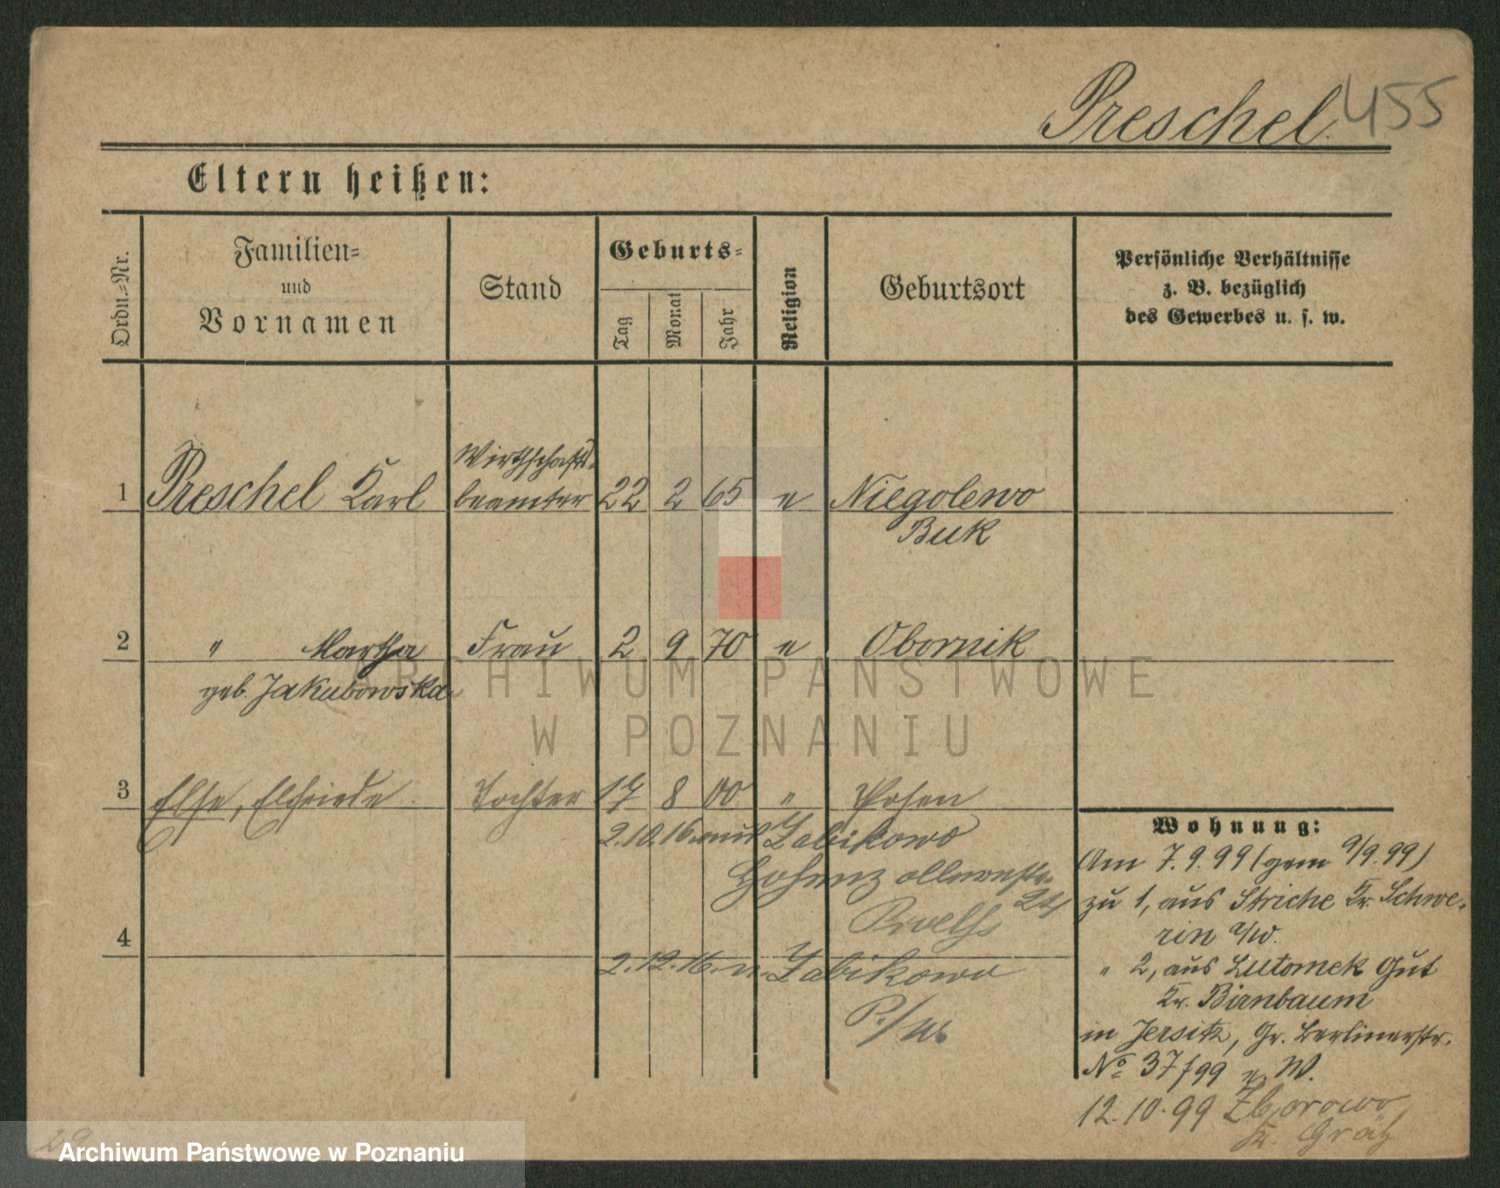 Preschel 455
Eltern heißen:
Ordn.-Nr.
Familien-
und
Vornamen
Stand
Geburts-
Tag
Monat
Jahr
Religion
Geburtsort
Persönliche Verhältnisse
z. B. bezüglich
des Gewerbes u. s. w.
Wirthschafts-
1 Preschel Karl beamter 22 2 65 e Niegolewo
Buk
2 " Martha Frau 2 9 70 e Obornik
geb. Jakubowska
3 Else, Elfriede Tochter 17 8 00 " Posen
2.10.16 aus Zabikowo
Hohenzollernstr.
24
4
2.12.16. n. Zabikowo
Wohnung:
Am 7.9.99 (gem 9/9.99)
zu 1, aus Striche Kr. Schwe-
rin a/W.
" 2, aus Lutomek Gut
Kr. Birnbaum
in Jersitz, Gr. Berlinerstr.
No 37/99 W.
12.10.99 Zborowo
Kr. Grätz
ARCHIWUM PAŃSTWOWE
W POZNANIU
29
Archiwum Państwowe w Poznaniu